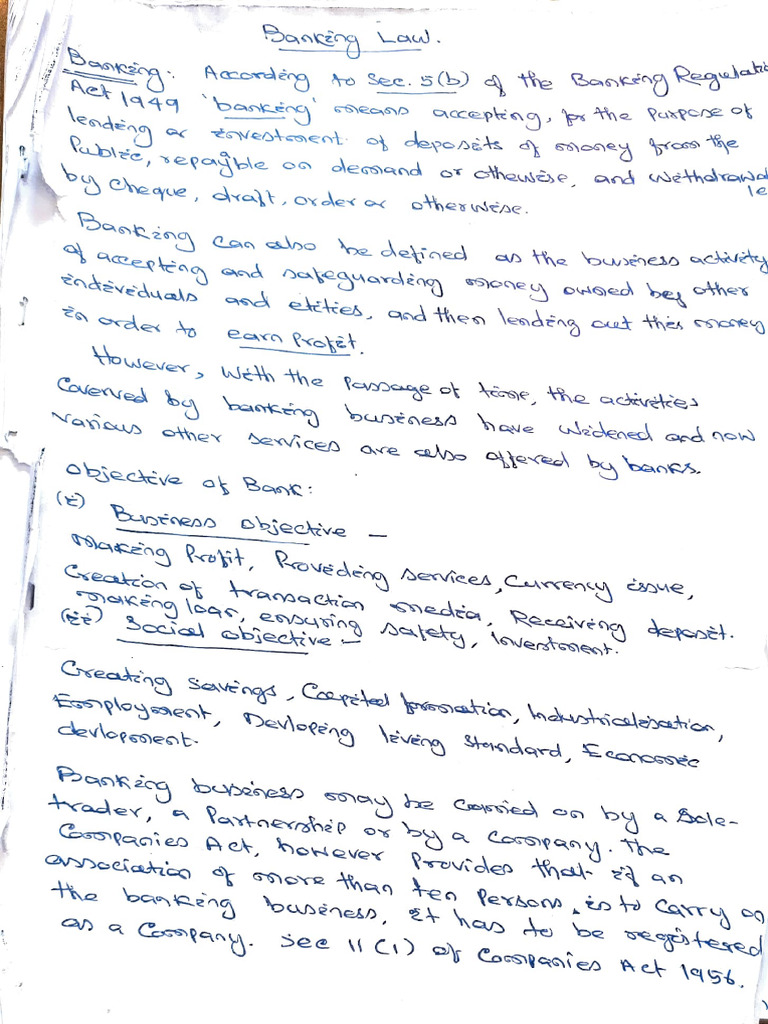 Banking Law.
Banking: According to Sec. 5(b) of the Banking Regulatio
Act 1949 'banking' means accepting, for the purpose of
lending or investment of deposits of money from the
Public, repayable on demand or othewise, and withdrawab
le
by cheque, draft, order or otherwise.
Banking can also be defined as the business activity
of accepting and safeguarding money owned by other
individuals and etities, and then lending out this money
in order to earn Profit.
However, with the passage of time, the activities
Coverved by banking business have widened and now
various other services are also offered by banks.
Objective of Bank:
(i) Business objective —
Making Profit, Providing services, Currency issue,
Creation of transaction media, Receiving deposit.
making loan, ensuring safety, Investment.
(ii) Social objective —
Creating savings, Capital formation, Industrialisation,
Employment, Devloping living standard, Economic
devlopment.
Banking business may be carried on by a Sole-
trader, a Partnership or by a company. The
Companies Act, however Provides that if an
association of more than ten persons, is to carry on
the banking business, it has to be registered
as a Company. Sec 11(1) of Companies Act 1956.